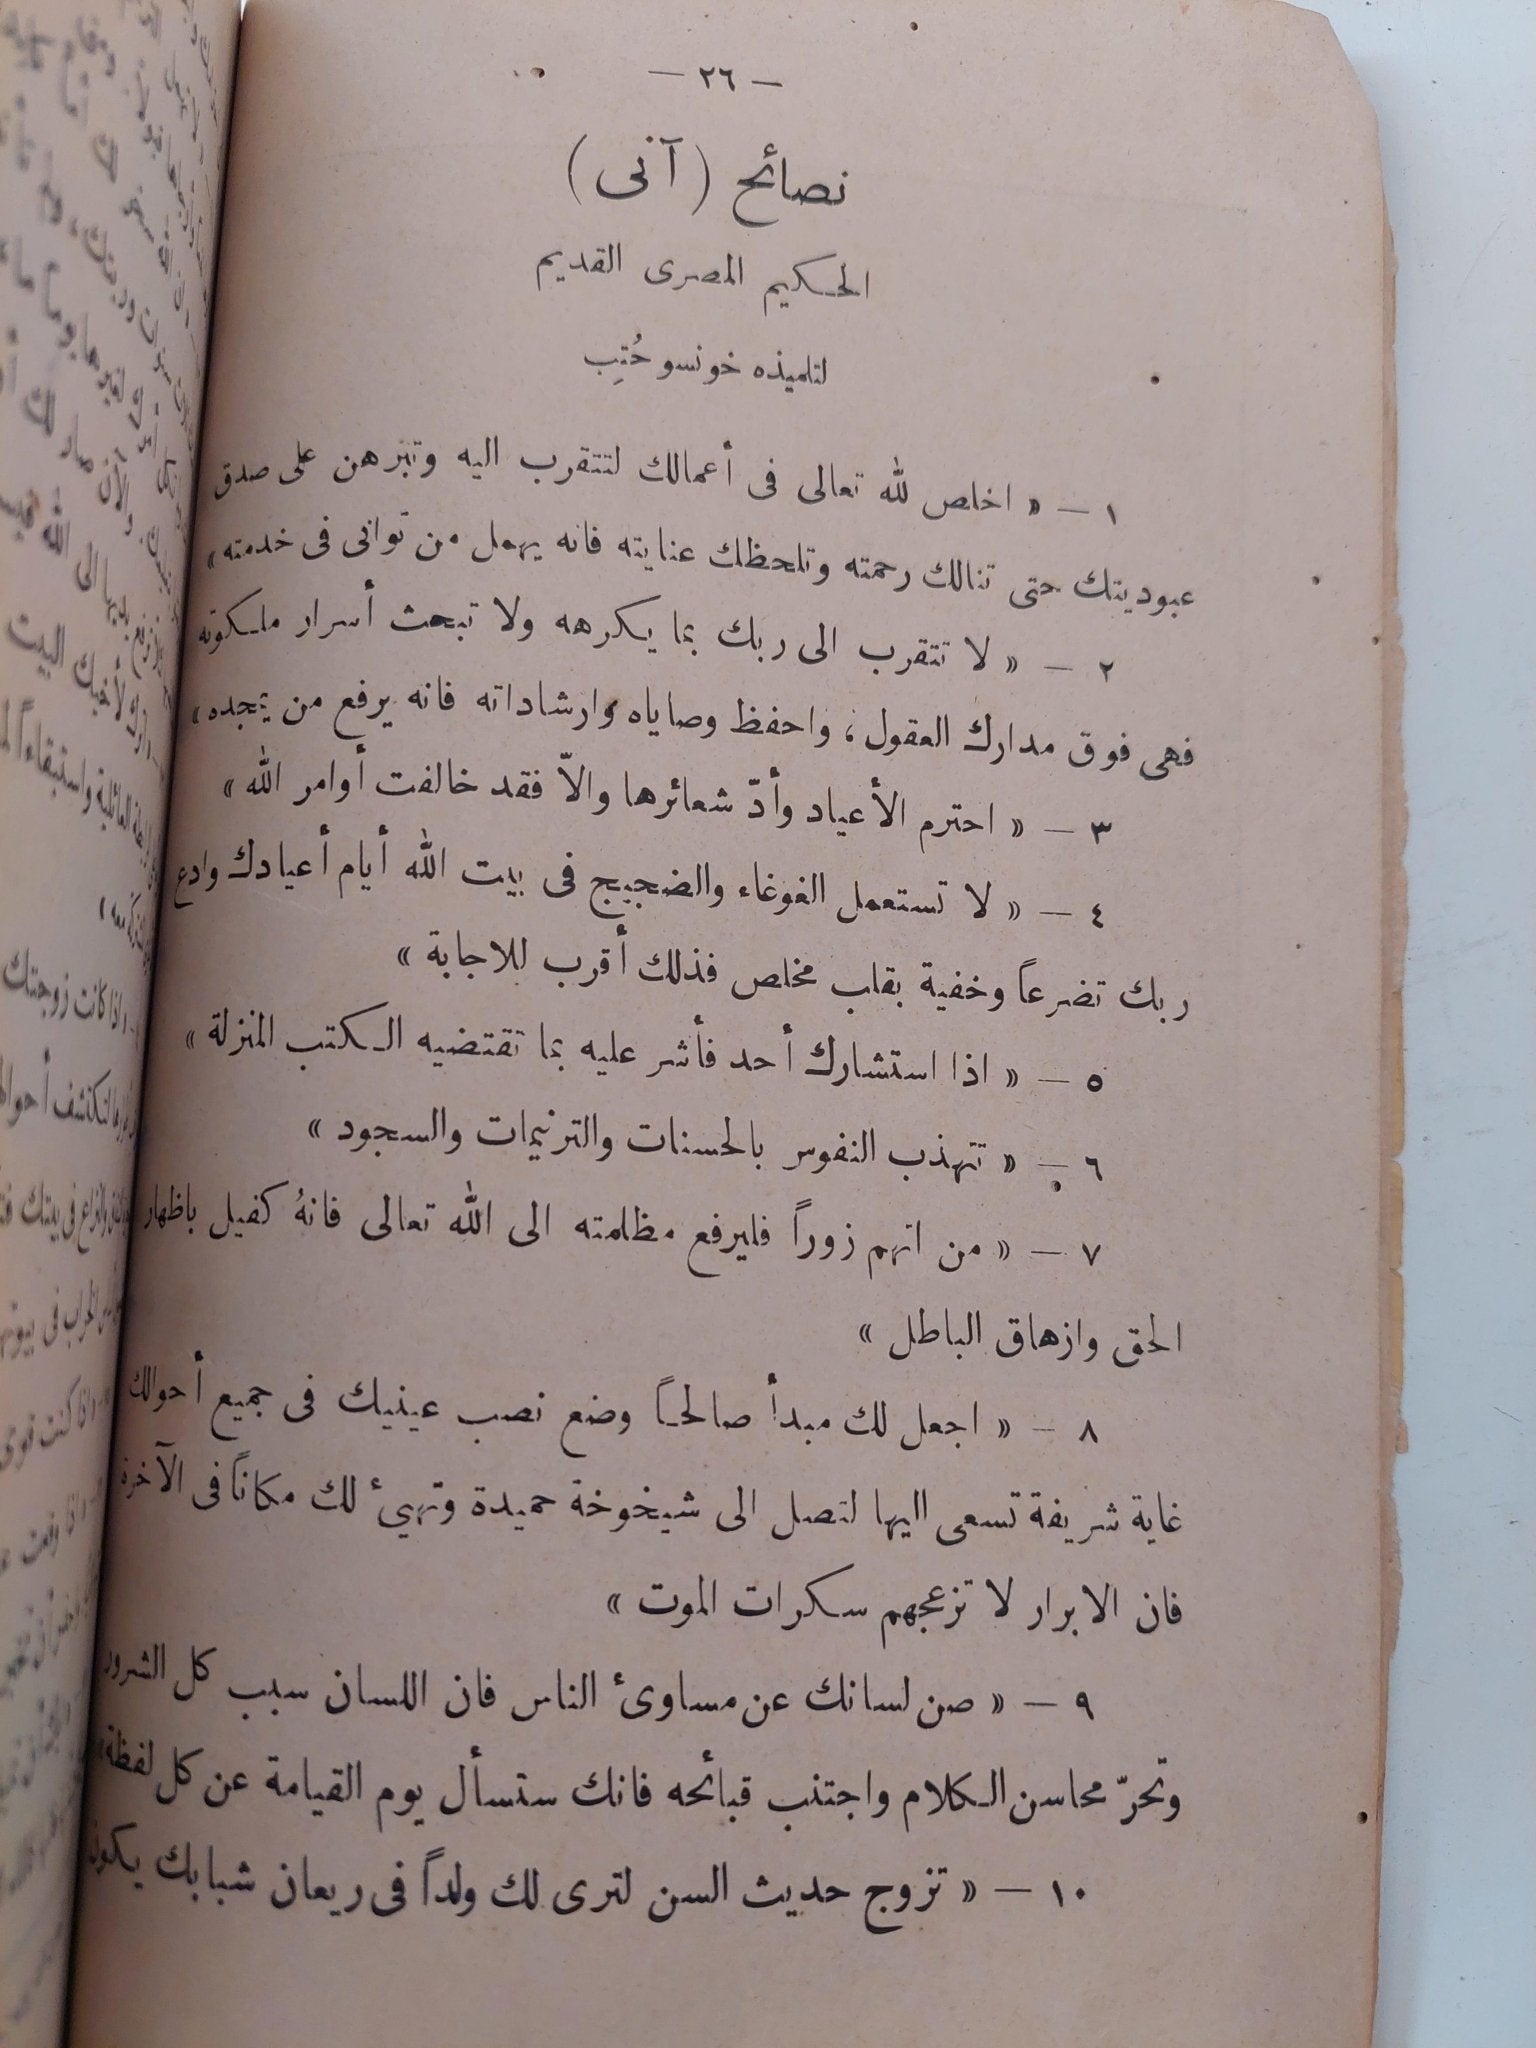 — ٢٦ —
نصائح ( آنى )
الحكيم المصرى القديم
لتلميذه خونسو حُتِب
١ — « اخلص لله تعالى فى أعمالك لتتقرب اليه وتبرهن على صدق
عبوديتك حتى تنالك رحمته وتلحظك عنايته فانه يهمل من توانى فى خدمته »
٢ — « لا تتقرب الى ربك بما يكرهه ولا تبحث أسرار ملكوته
فهى فوق مدارك العقول ، واحفظ وصاياه وارشاداته فانه يرفع من يمجده »
٣ — « احترم الأعياد وأدّ شعائرها والاّ فقد خالفت أوامر الله »
٤ — « لا تستعمل الغوغاء والضجيج فى بيت الله أيام أعيادك وادع
ربك تضرعاً وخفية بقلب مخلص فذلك أقرب للاجابة »
٥ — « اذا استشارك أحد فأشر عليه بما تقتضيه الكتب المنزلة »
٦ — « تتهذب النفوس بالحسنات والترنيمات والسجود »
٧ — « من اتهم زوراً فليرفع مظلمته الى الله تعالى فانهُ كفيل باظهار
الحق وازهاق الباطل »
٨ — « اجعل لك مبدأ صالحاً وضع نصب عينيك فى جميع أحوالك
غاية شريفة تسعى اليها لتصل الى شيخوخة حميدة وتهيئ لك مكاناً فى الآخرة
فان الابرار لا تزعجهم سكرات الموت »
٩ — « صن لسانك عن مساوئ الناس فان اللسان سبب كل الشرور
وتحرّ محاسن الكلام واجتنب قبائحه فانك ستسأل يوم القيامة عن كل لفظة »
١٠ — « تزوج حديث السن لترى لك ولداً فى ريعان شبابك يكون